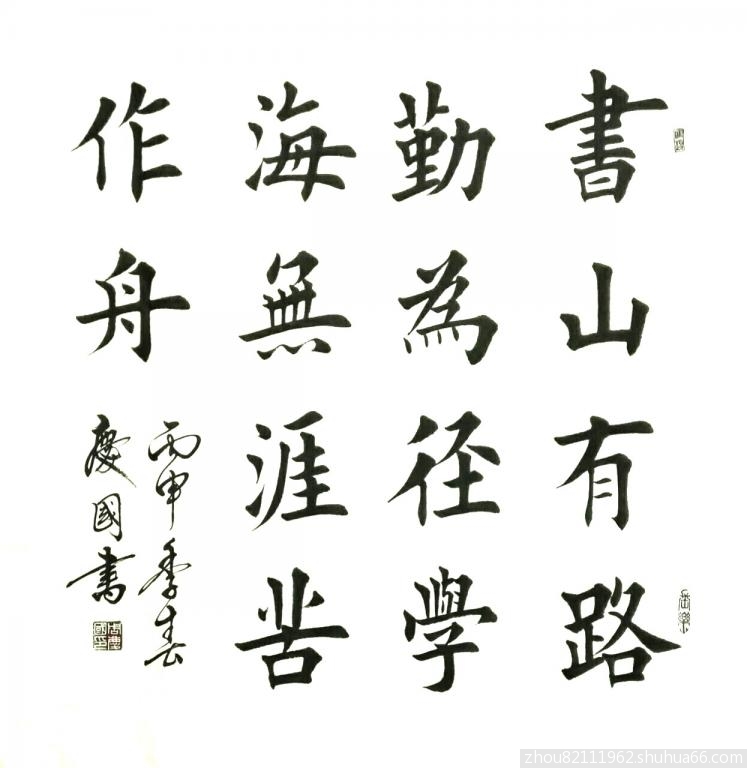 書山有路
勤為径學
海無涯苦
作舟
丙申季春
慶國書
zhou82111962.shuhua66.com